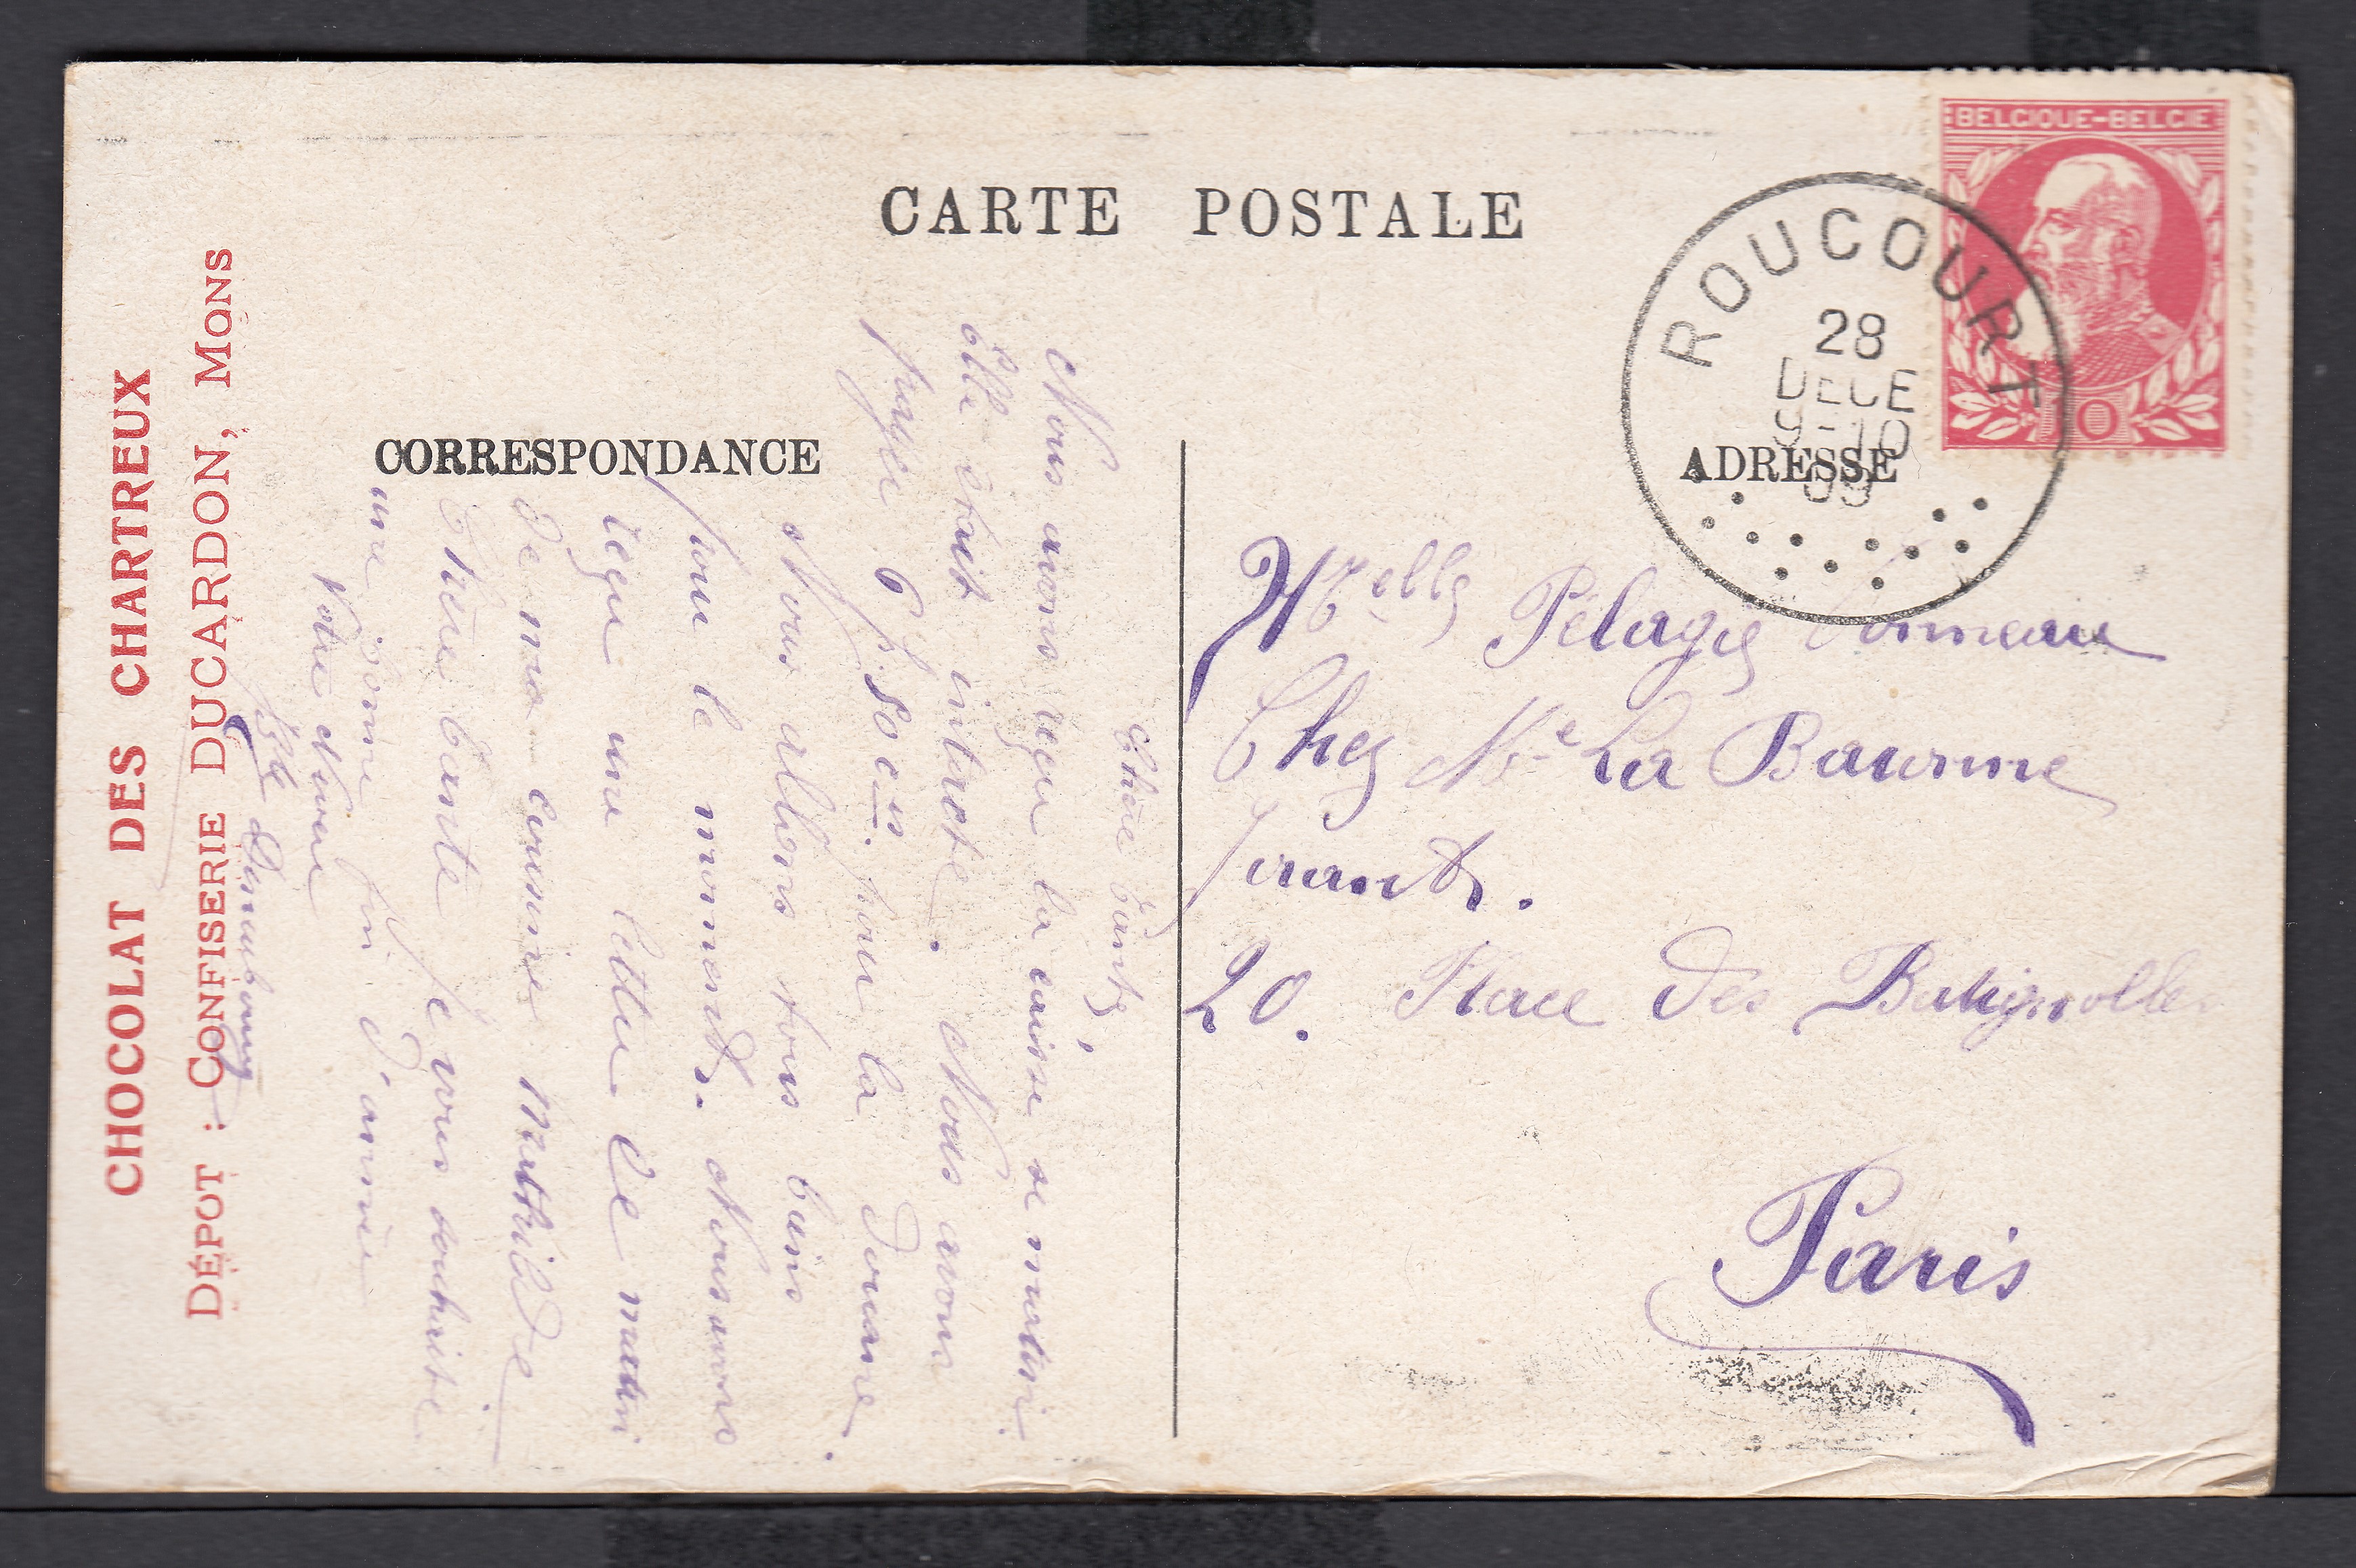 CARTE POSTALE
CORRESPONDANCE
ADRESSE
BELGIQUE-BELGIE
10
ROUCOURT
28
DECE
9-10
09
CHOCOLAT DES CHARTREUX
DÉPOT : CONFISERIE DUCARDON, MONS
Chère Tante,
Nous avons reçu la caisse ce matin
Elle était intacte. Nous avons
payer 6 f. 80 cs. pour la douane.
Nous allons tous bien
pour le moment. Nous avons
reçu une lettre de matin
de ma cousine Mathilde.
Chère Tante je vous souhaite
une bonne fin d'année
Votre Neveu
Pélagie
Chez Me La Baurme
Gérant.
20. Place des Batignolles
Paris